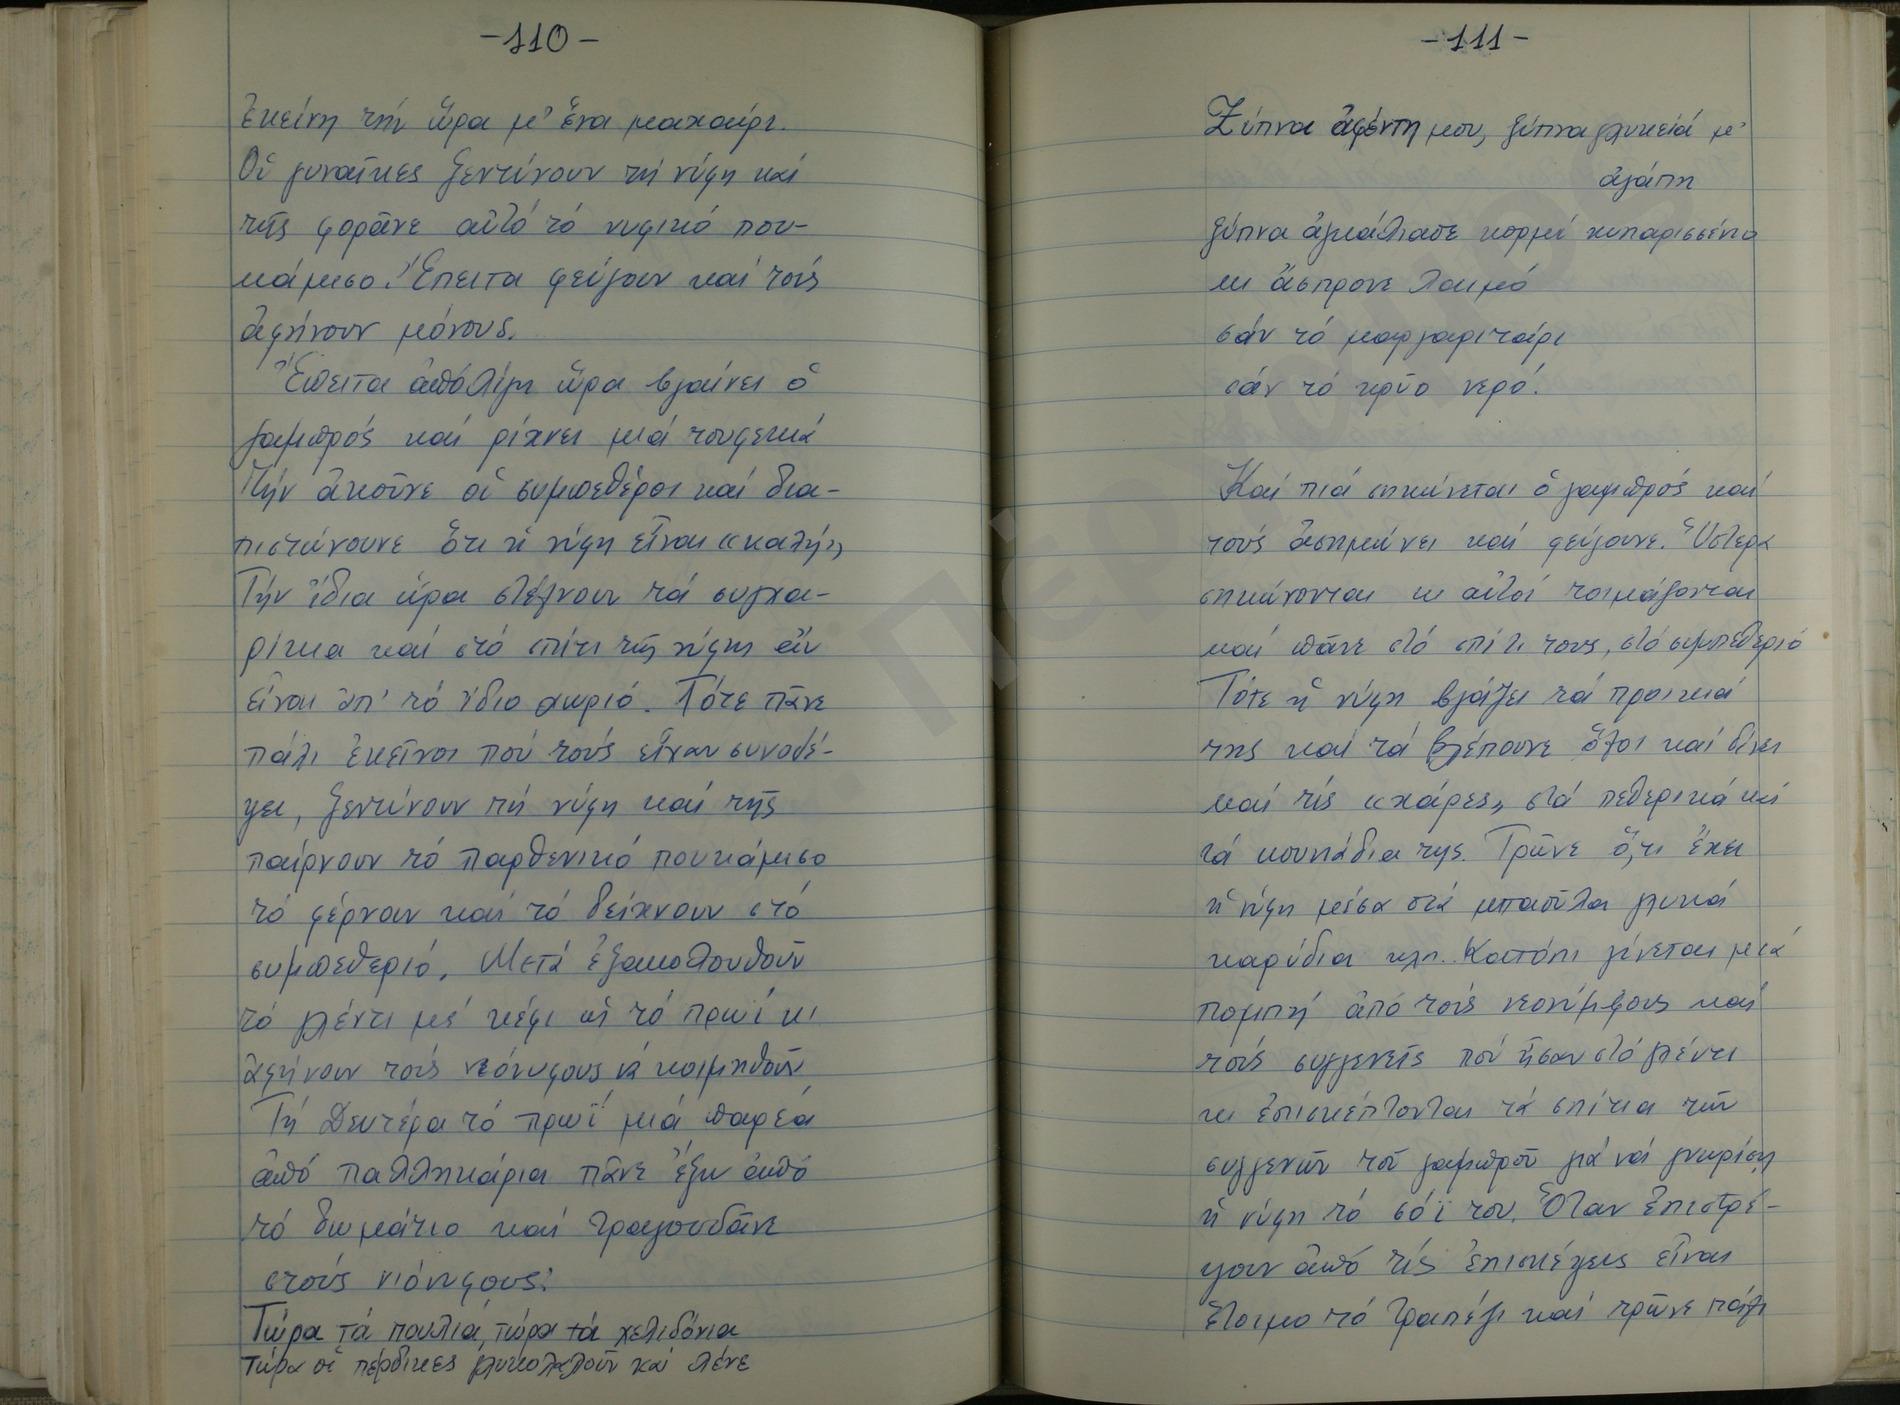 -110-
ἐκείνη τήν ὥρα μ' ἕνα μαχαίρι.
Οἱ γυναῖκες ξεντύνουν τή νύφη καί
τῆς φορᾶνε αὐτό τό νυφικό που-
κάμισο. Ἔπειτα φεύγουν καί τούς
ἀφήνουν μόνους.
Ἔπειτα ἀπό λίγη ὥρα βγαίνει ὁ
γαμπρός καί ρίχνει μιά τουφεκιά
τήν ἀκοῦνε οἱ συμπεθέροι καί δια-
πιστώνουνε ὅτι ἡ νύφη εἶναι «καλή»
Τήν ἴδια ὥρα στέλνουν τά συχα-
ρίκια καί στό σπίτι τῆς νύφης ἄν
εἶναι ἀπ' τό ἴδιο χωριό. Τότε πᾶνε
πάλι ἐκεῖνοι πού τούς εἶχαν συνοδέ-
ψει, ξεντύνουν τή νύφη καί τῆς
παίρνουν τό παρθενικό πουκάμισο
τό φέρναν καί τό δείχνουν στό
συμπεθεριό. Μετά ἐξακολουθοῦν
τό γλέντι μέ κέφι ὡς τό πρωί κι
ἀφήνουν τούς νεόνυφους νά κοιμηθοῦν
Τή Δευτέρα τό πρωΐ μιά παρέα
ἀπό παλληκάρια πᾶνε ἔξω ἀπό
τό δωμάτιο καί τραγουδᾶνε
στούς νιόνυφους:
Τώρα τά πουλιά, τώρα τά χελιδόνια
τώρα οἱ πέρδικες γλυκολαλοῦν καί λένε
-111-
Ξύπνα ἀφέντη μου, ξύπνα γλυκειά μ'
ἀγάπη
ξύπνα ἀγκάλιασε κορμί κυπαρισσένιο
κι ἄσπρονε λαιμό
σάν τό μαργαριτάρι
σάν τό κρύο νερό.
Καί πιά σηκώνεται ὁ γαμπρός καί
τούς ἀσημώνει καί φεύγουνε. Ὕστερα
σηκώνονται κι αὐτοί τοιμάζονται
καί πᾶνε στό σπίτι τους, στό συμπεθεριό
Τότε ἡ νύφη βγάζει τά προικιά
της καί τά βλέπουνε ὅλοι καί δίνει
καί τίς «χάρες» στά πεθερικά καί
τά κουνιάδια της. Τρῶνε ὅ,τι ἔχει
ἡ νύφη μέσα στά μπαοῦλα γλυκά
καρύδια κλπ. Κατόπι γίνεται μιά
πομπή ἀπό τούς νεονύμφους καί
τούς συγγενεῖς πού ἦσαν στό γλέντι
κι ἐπισκέπτονται τά σπίτια τῶν
συγγενῶν τοῦ γαμπροῦ γιά νά γνωρίση
ἡ νύφη τό σόϊ του. Ὅταν ἐπιστρέ-
ψουν ἀπό τίς ἐπισκέψεις εἶναι
ἕτοιμο τό τραπέζι καί τρῶνε πάλι